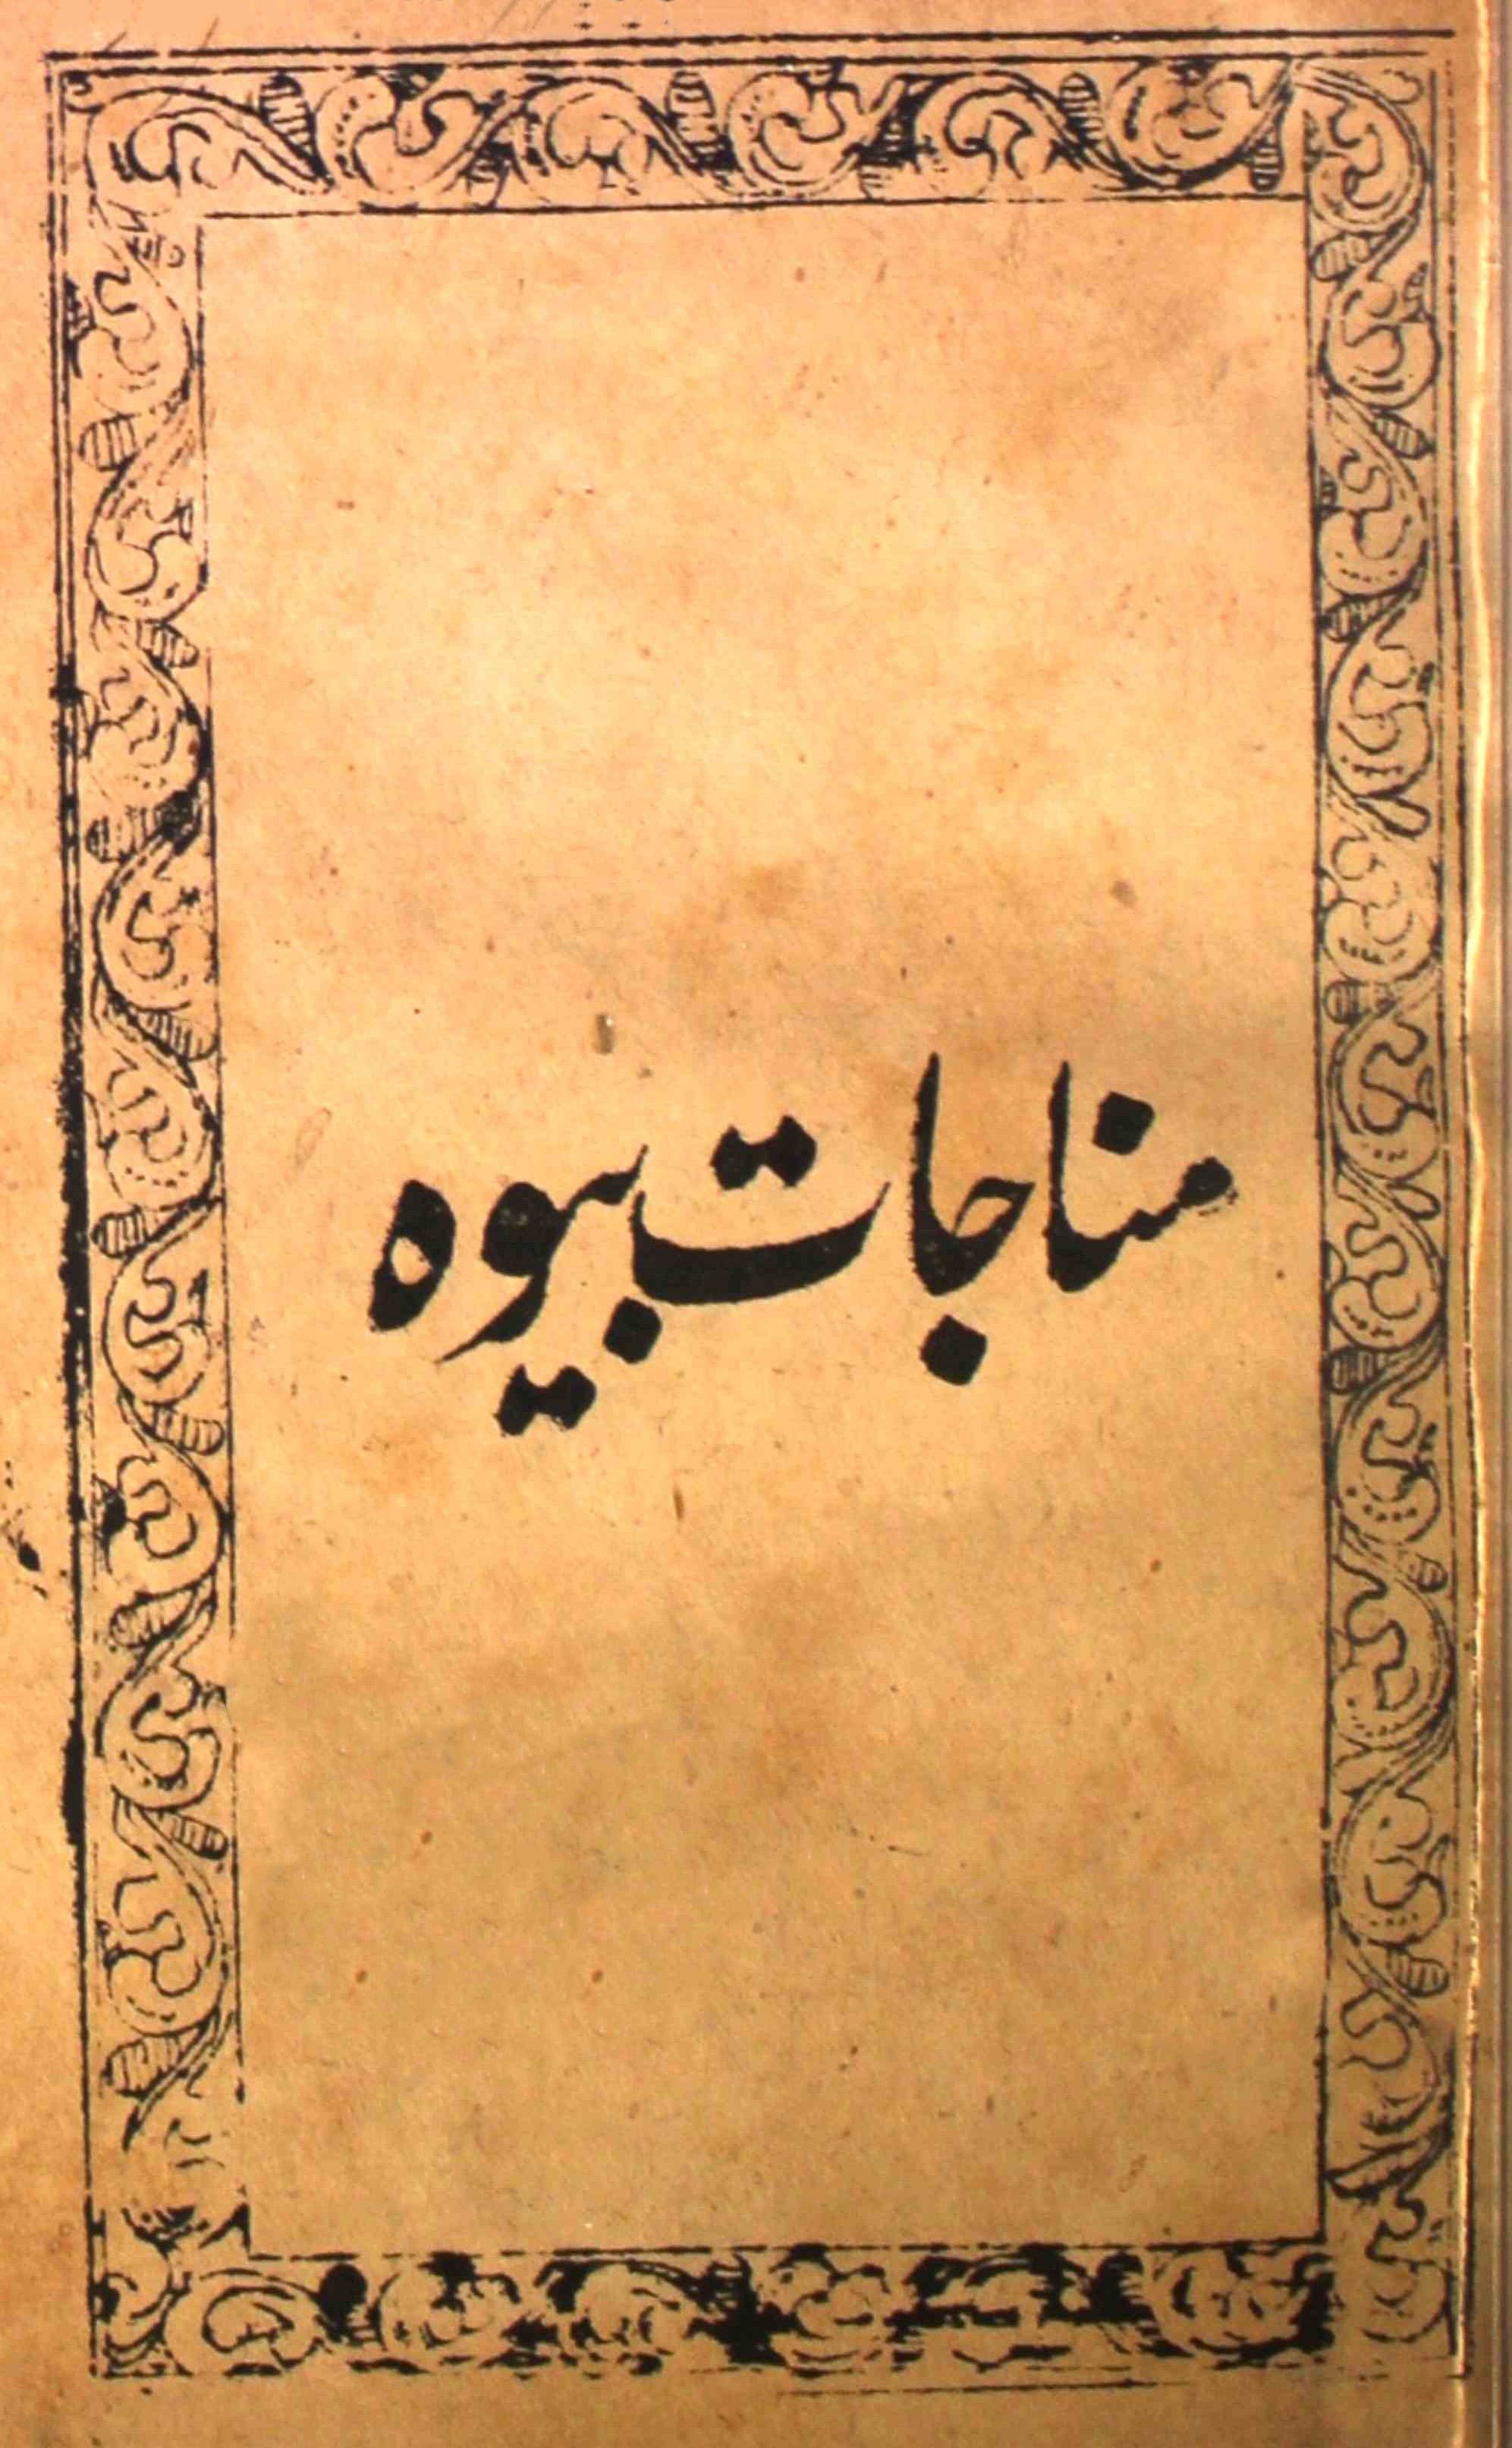 مناجات بیوہ